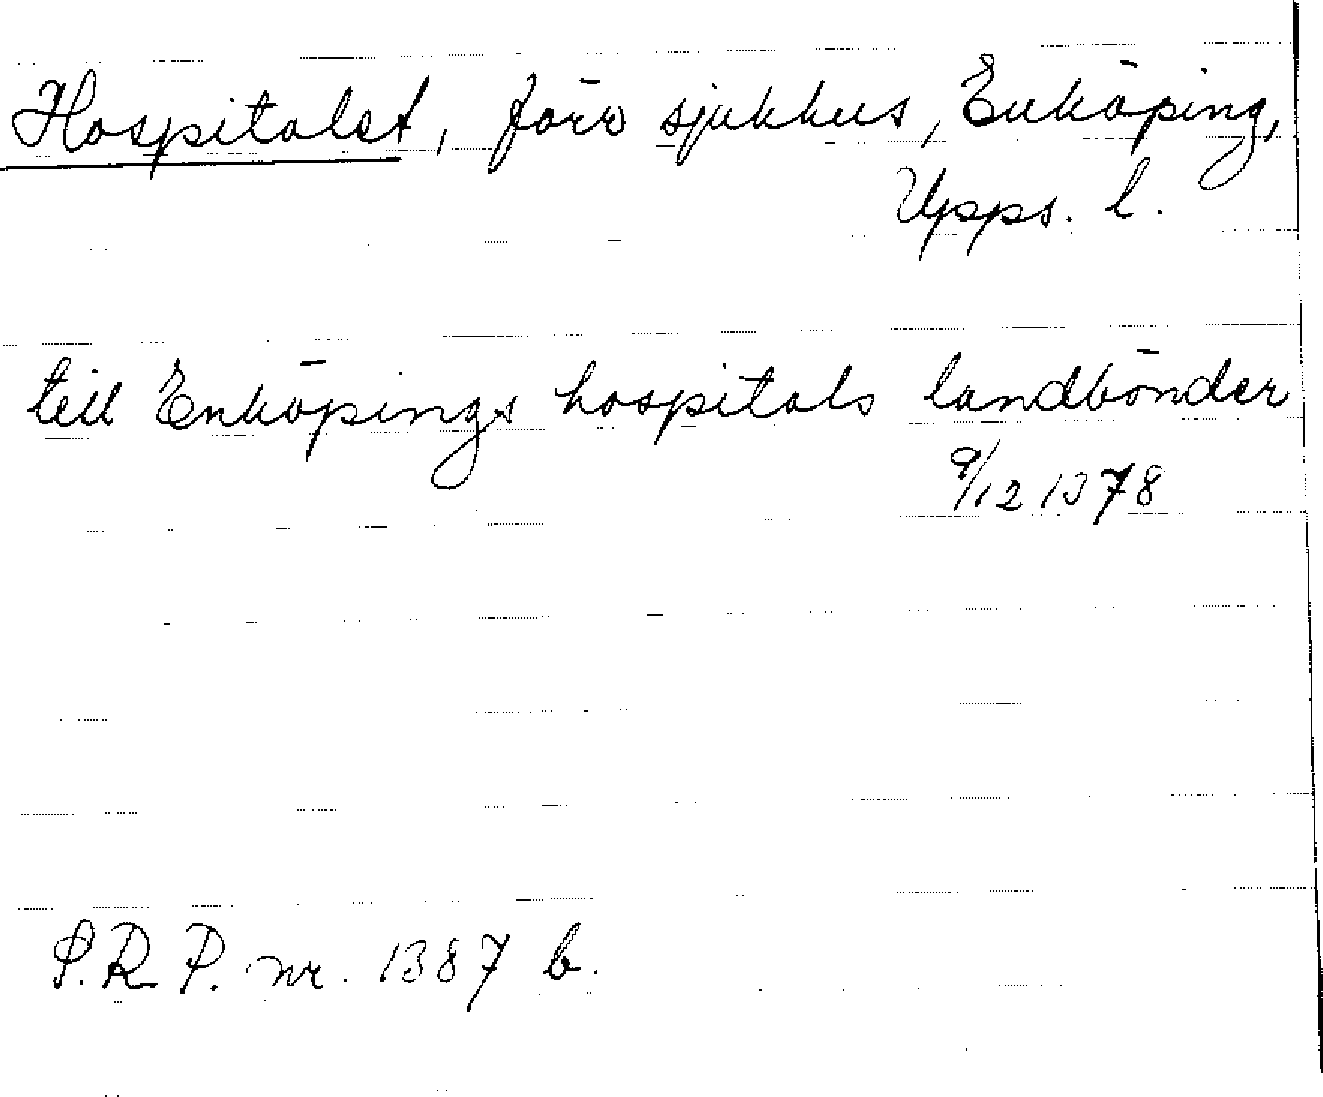 Hospitalet, förv sjukhus, Enköping,
Upps. l.
till Enköpings hospitals landbönder
9/12 1378
S.R.P. nr. 1387 b.